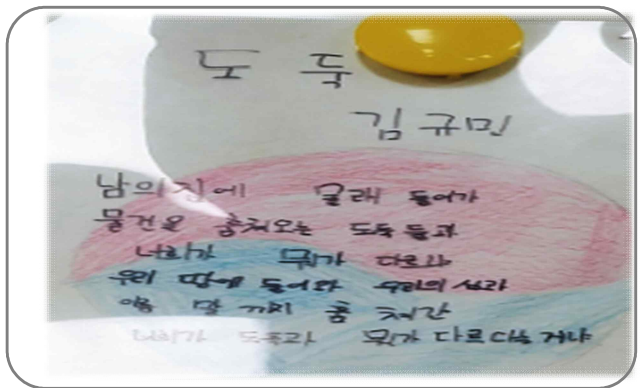 도둑
김규민
남의집에 몰래 들어가
물건을 훔쳐오는 도둑들과
너희가 뭐가 다르냐
우리 땅에 들어와 우리의
말 까지 훔쳐간
너희가 도둑과 뭐가 다르다는 거냐